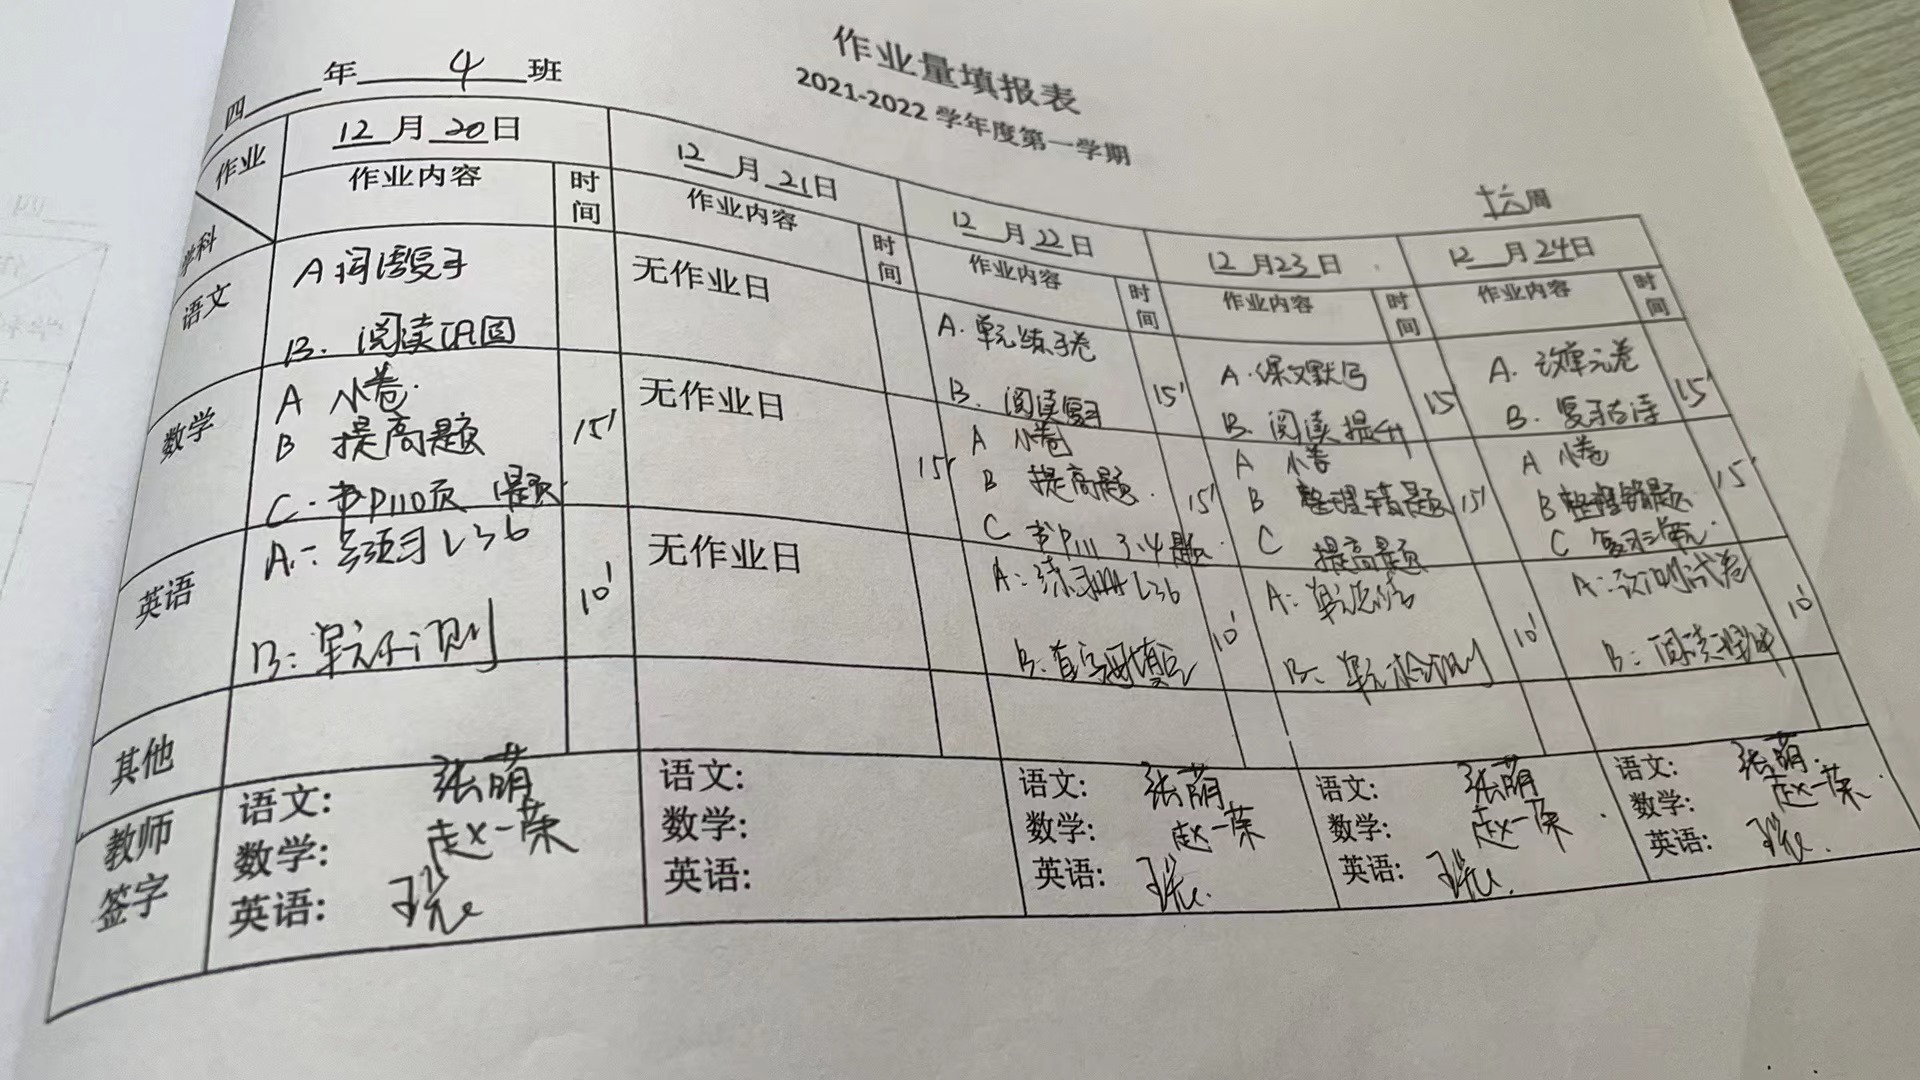 作业量填报表
2021-2022 学年度第一学期
四 年 4 班
十六周
作业
学科
12 月 20 日
12 月 21 日
12 月 22 日
12 月 23 日
12 月 24 日
作业内容 时间
作业内容 时间
作业内容 时间
作业内容 时间
作业内容 时间
语文
A 词语复习
B. 阅读巩固
无作业日
A. 单元练习卷
B. 阅读复习
15'
A. 课文默写
B. 阅读提升
15'
A. 改单元卷
B. 复习古诗
15'
数学
A 小卷.
B 提高题
C. 书P110页 1题
15'
无作业日
15'
A 小卷
B 提高题.
C 书P111 3、4题.
15'
A 小卷
B 整理错题
C 提高题
15'
A 小卷
B 整理错题
C 复习三单元.
15'
英语
A: 预习L36
B: 单元测
10'
无作业日
A: 练习册L36
B: 首字母填空
10'
A: 单元总结
B: 单元检测
10'
A: 改测试卷
B: 阅读理解
10'
其他
教师签字
语文: 张萌
数学: 赵一荣
英语:
语文:
数学:
英语:
语文: 张萌
数学: 赵一荣
英语:
语文: 张萌
数学: 赵一荣
英语:
语文: 张萌
数学: 赵一荣
英语: